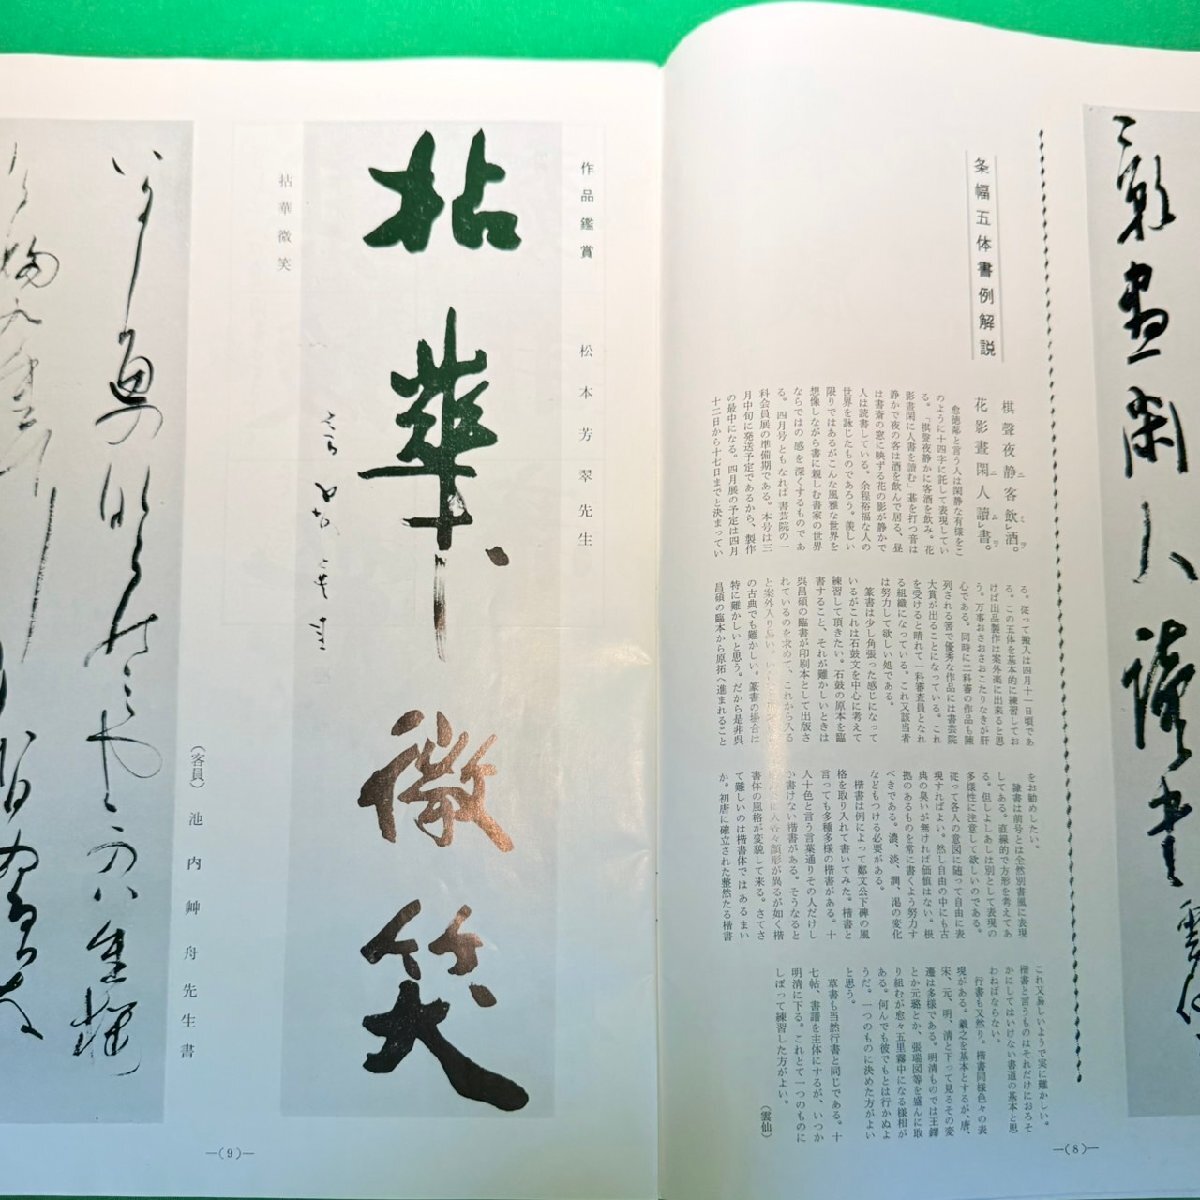 条幅五体書例解説
棋聲夜静客飲レ酒。
花影晝閑人讀レ書。
のように十四字に託して表現してい
る。「棋聲夜静かに客酒を飲み。花
影晝閑に人書を讀む　碁を打つ音は
静かで夜の客は酒を飲んで居る、昼
は書斎の窓に映ずる花の影が静かで
人は読書している。余程裕福な人の
世界を詠じたものであろう。羨しい
限りではあるがこんな風雅な世界を
想像しながら書に親しむ書家の世界
ならではの感を深くするものであ
る。四月号ともなれば書芸院の一
科会員展の準備期である。本号は三
月中旬に発送予定であるから、製作
の最中になる。四月展の予定は四月
十二日から十七日までと決まってい
る。従って搬入は四月十一日頃であ
る。この五体を基本的に練習してお
けば出品製作は案外楽に出来ると思
う。万事おさおさおこたりなきが肝
心である。同時に二科審の作品も陳
列される筈で優秀な作品には書芸院
大賞が出ることになっている。これ
を受けると晴れて一科審査員となれ
る組織になっている。これ又該当者
は努力して欲しい処である。
篆書は少し角張った感じになって
いるがこれは石鼓文を中心に考えて
練習して頂きたい。石鼓の原本を臨
書すること、それが難かしいときは
呉昌碩の臨書が印刷本として出版さ
れているのを求めて、これから入る
の古典でも難かしい。篆書の場合は
特に難かしいと思う。だから是非呉
昌碩の臨本から原拓へ進まれること
をお勧めしたい。
隷書は前号とは全然別書風に表現
してある。直線的で方形を考えてあ
る。但しよしあしは別として表現の
多様性に注意して欲しいのである。
従って各人の意図に随って自由に表
現すればよい。然し自由の中にも古
典の臭いが無ければ価値はない。根
拠のあるものを常に書くよう努力す
べきである。濃、淡、潤、渇の変化
などもつける必要がある。
楷書は例によって鄭文公下碑の風
格を取り入れて書いてみた。楷書と
言っても多種多様の楷書がある。十
人十色と言う言葉通りその人だけし
か書けない楷書がある。そうなると
書体の風格が変貌して来る。さてさ
て難しいのは楷書体ではあるまい
か。初唐に確立された整然たる楷書
これ又易しいようで実に難かしい。
楷書と言うものはそれだけにおろそ
かにしてはいけない書道の基本と思
わねばならない。
行書も又然り。楷書同様色々の表
現がある。羲之を基本とするが、唐、
宋、元、明、清と下って見るその変
遷は多様である。明清ものでは王鐸
とか元璐とか、張瑞図等を盛んに取
り組むが愈々五里霧中になる様相が
ある。何んでも彼でもとは行かぬよ
うだ。一つのものに決めた方がよい
と思う。
草書も当然行書と同じである。十
七帖、書譜を主体にするが、いつか
明清に下る。これとて一つのものに
しぼって練習した方がよい。
（雲仙）
—(8)—
作品鑑賞　松本芳翠先生
拈華微笑
拈華微笑
（客員）池内艸舟先生書
—(9)—